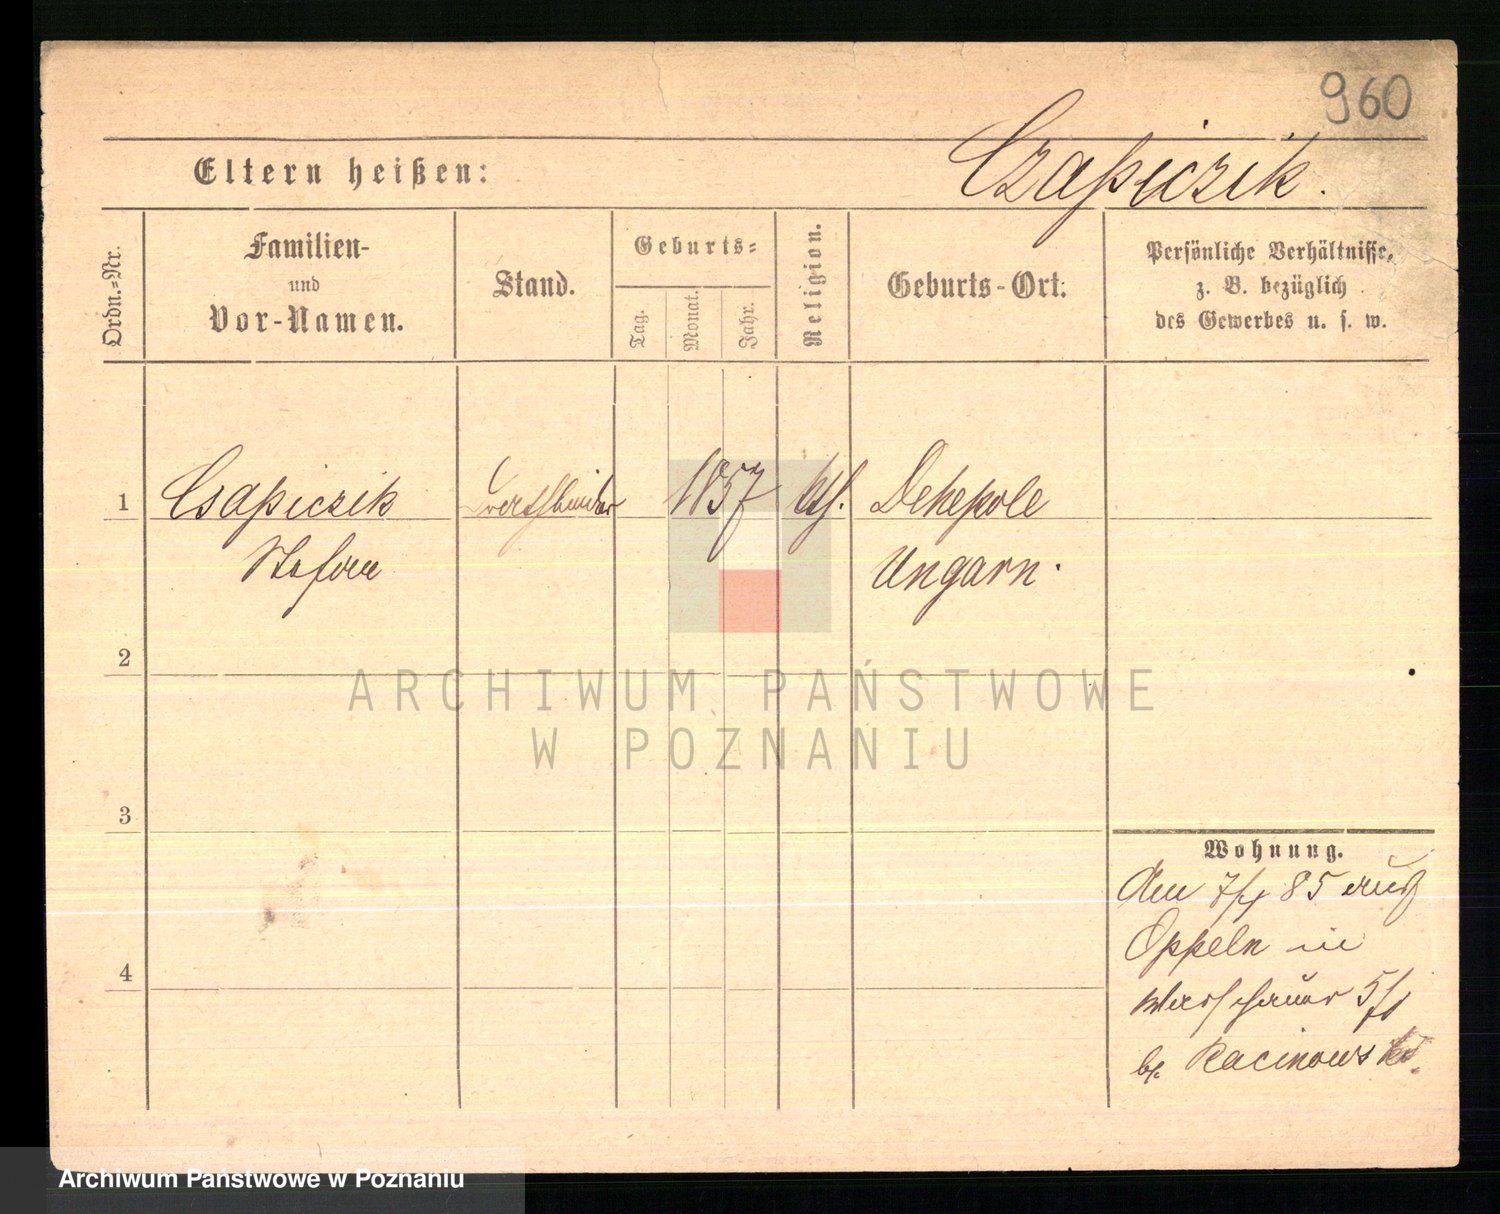 960
Eltern heißen:
Czapiczik.
Ordn.-Nr.
Familien-
und
Vor-Namen.
Stand.
Geburts-
Tag.
Monat.
Jahr.
Religion.
Geburts-Ort.
Persönliche Verhältnisse,
z. B. bezüglich
des Gewerbes u. s. w.
1
Csapiczik
1857
kth.
Dehepole
Stefan
Ungarn.
2
ARCHIWUM PAŃSTWOWE
W POZNANIU
3
Wohnung.
Am 7/4 85 aus
Oppeln in
4
Warschauer 5/1
b. Racinowski.
Archiwum Państwowe w Poznaniu